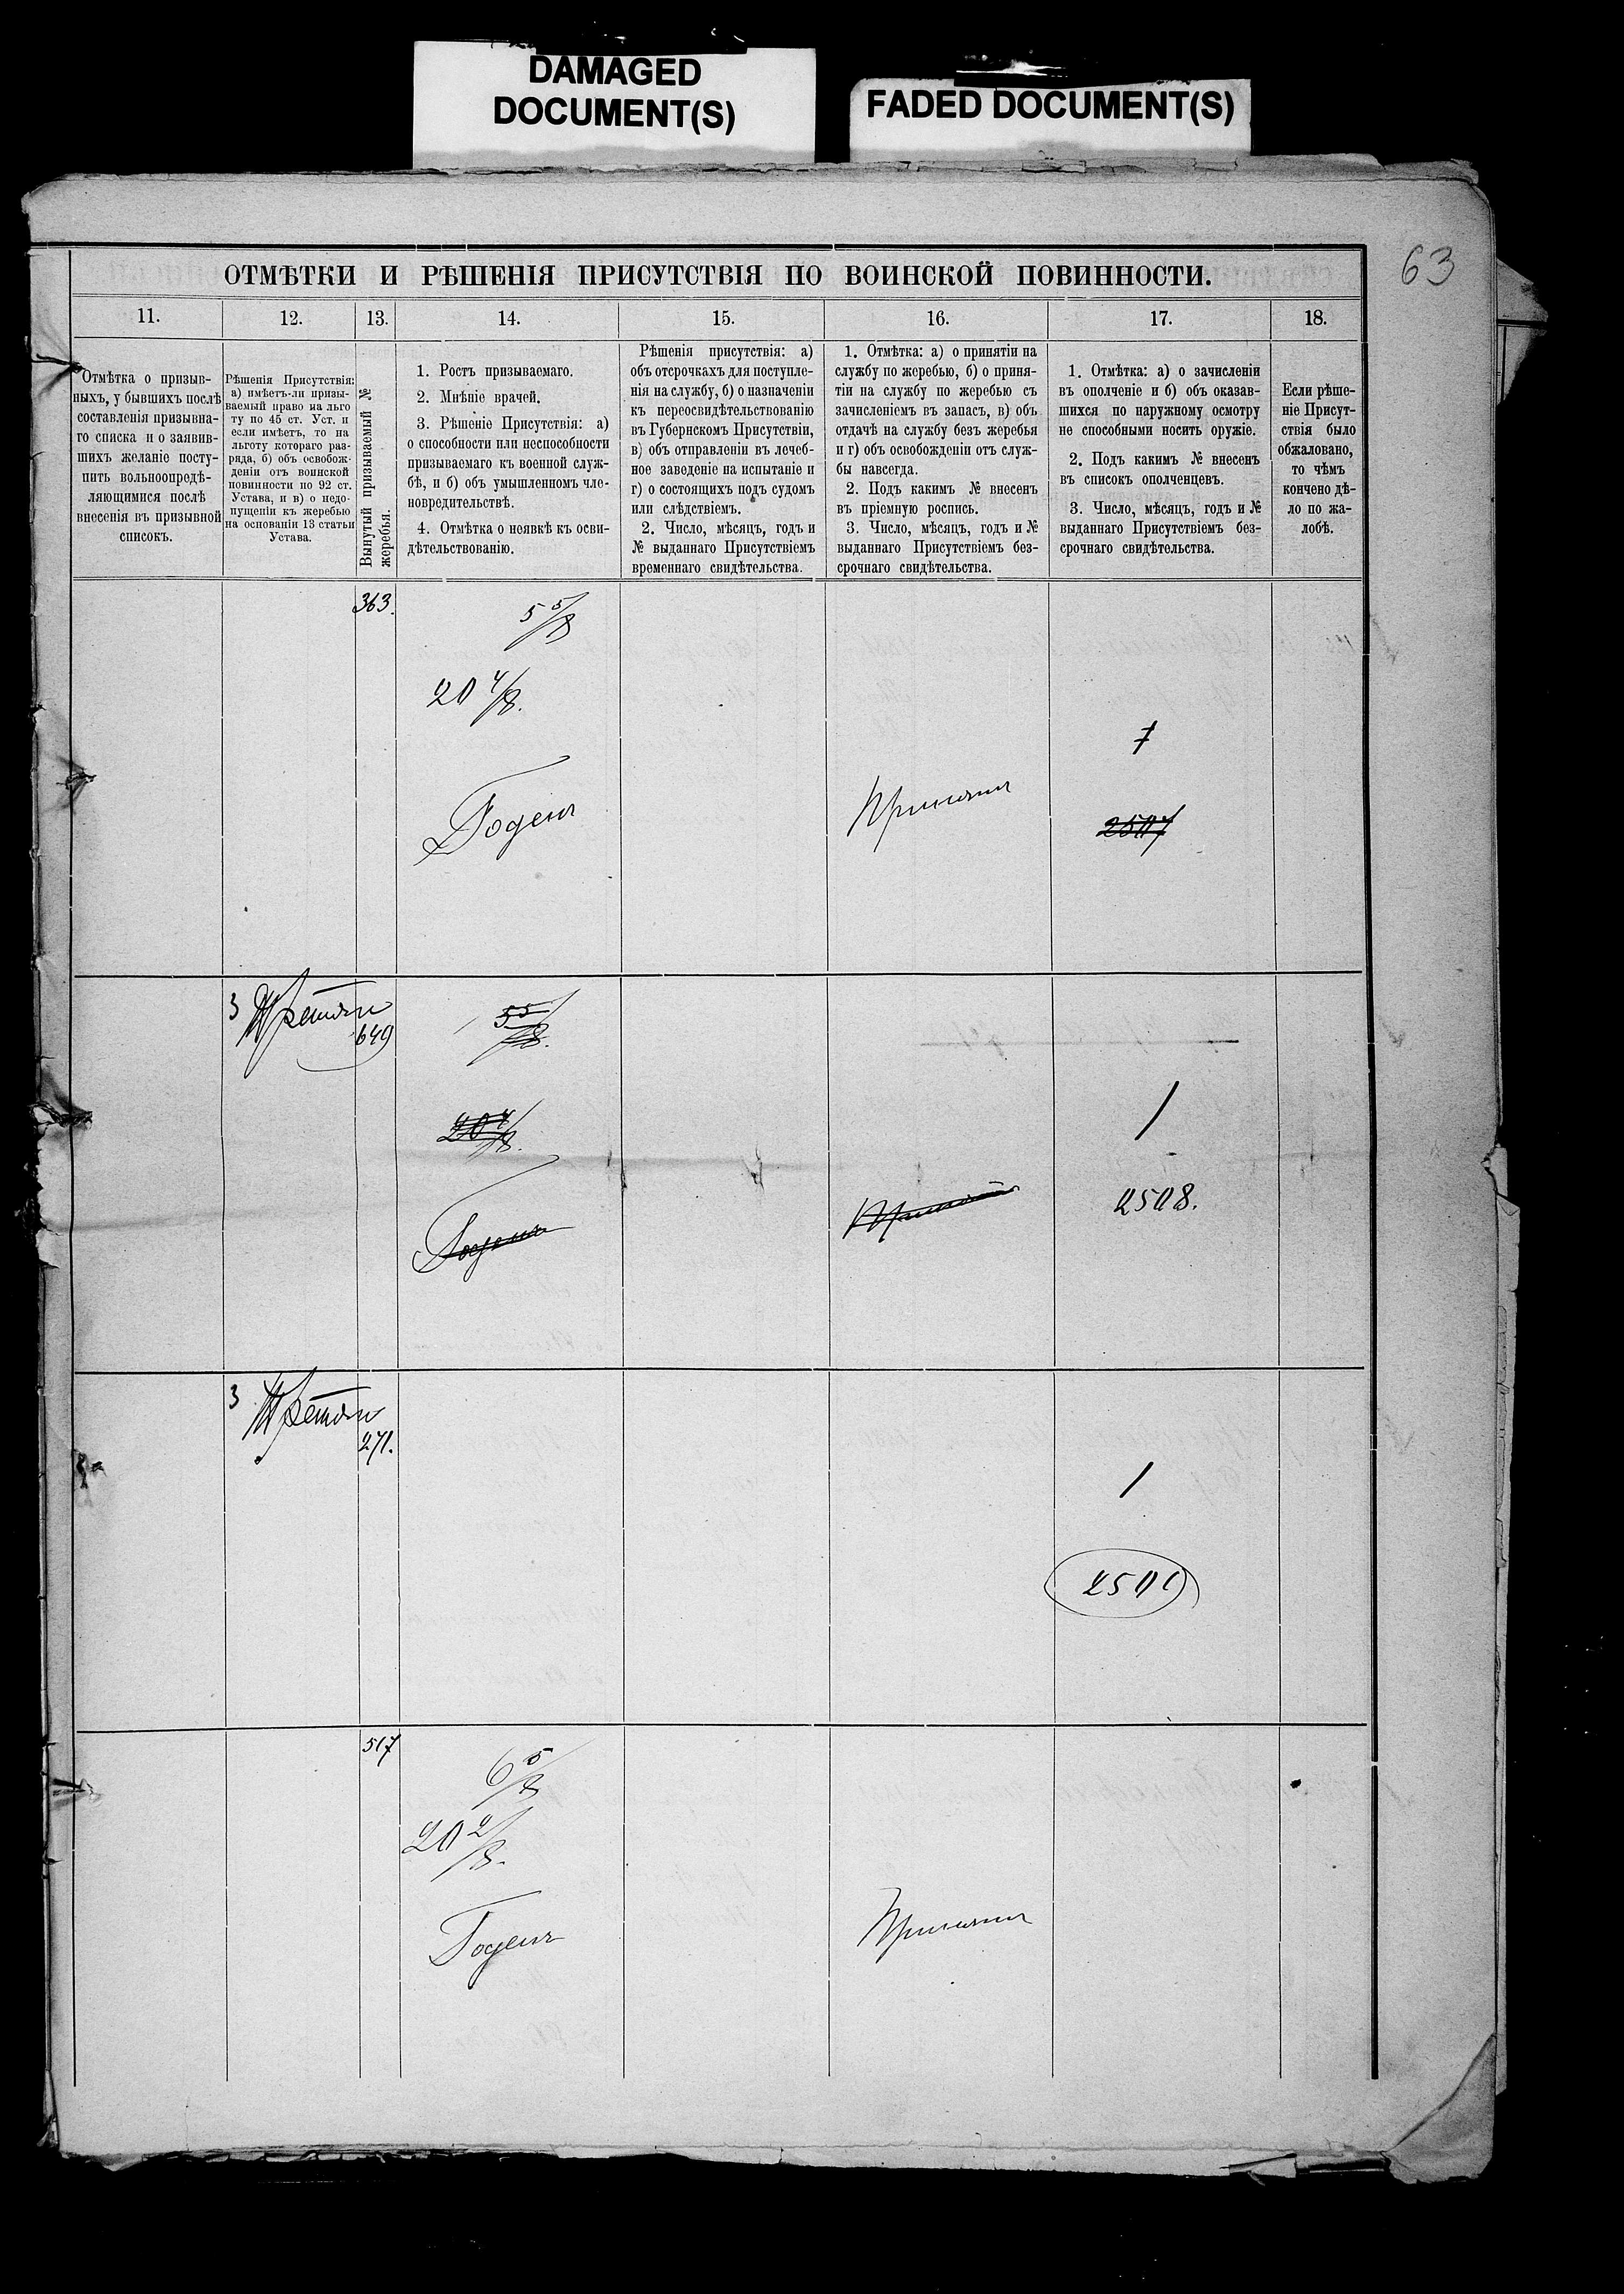 DAMAGED
DOCUMENT(S)
FADED DOCUMENT(S)
63
ОТМѢТКИ И РѢШЕНІЯ ПРИСУТСТВІЯ ПО ВОИНСКОЙ ПОВИННОСТИ.
11. 12. 13. 14. 15. 16. 17. 18.
Отмѣтка о призыв-
ныхъ, у бывшихъ послѣ
составленія призывна-
го списка и о заявив-
шихъ желаніе посту-
пить вольноопредѣ-
ляющимися послѣ
внесенія въ призывной
списокъ.
Рѣшенія Присутствія:
а) имѣетъ-ли призы-
ваемый право на льго
ту по 45 ст. Уст. и
если имѣетъ, то на
льготу котораго раз-
ряда, б) объ освобож-
деніи отъ воинской
повинности по 92 ст.
Устава, и в) о недо-
пущеніи къ жеребью
на основаніи 13 статьи
Устава.
Вынутый призываемый №
жеребья.
1. Ростъ призываемаго.
2. Мнѣніе врачей.
3. Рѣшеніе Присутствія: а)
о способности или неспособности
призываемаго къ военной служ-
бѣ, и б) объ умышленномъ чле-
новредительствѣ.
4. Отмѣтка о неявкѣ къ осви-
дѣтельствованію.
Рѣшенія присутствія: а)
объ отсрочкахъ для поступле-
нія на службу, б) о назначеніи
къ переосвидѣтельствованію
въ Губернскомъ Присутствіи,
в) объ отправленіи въ лечеб-
ное заведеніе на испытаніе и
г) о состоящихъ подъ судомъ
или слѣдствіемъ.
2. Число, мѣсяцъ, годъ и
№ выданнаго Присутствіемъ
временнаго свидѣтельства.
1. Отмѣтка: а) о принятіи на
службу по жеребью, б) о приня-
тіи на службу по жеребью съ
зачисленіемъ въ запасъ, в) объ
отдачѣ на службу безъ жеребья
и г) объ освобожденіи отъ служ-
бы навсегда.
2. Подъ какимъ № внесенъ
въ пріемную роспись.
3. Число, мѣсяцъ, годъ и №
выданнаго Присутствіемъ без-
срочнаго свидѣтельства.
1. Отмѣтка: а) о зачисленіи
въ ополченіе и б) объ оказав-
шихся по наружному осмотру
не способными носить оружіе.
2. Подъ какимъ № внесенъ
въ списокъ ополченцевъ.
3. Число, мѣсяцъ, годъ и №
выданнаго Присутствіемъ без-
срочнаго свидѣтельства.
Если рѣше-
ніе Присут-
ствія было
обжаловано,
то чѣмъ
кончено дѣ-
ло по жа-
лобѣ.
363.
5 5/8
20 4/8.
Годенъ
Принятъ
7
2507
3 Третій
649
5 5/8.
20 4/8.
Годенъ
Принятъ
1
2508.
3 Третій
271.
1
2509
517
6 5/8
20 2/8.
Годенъ
Принятъ